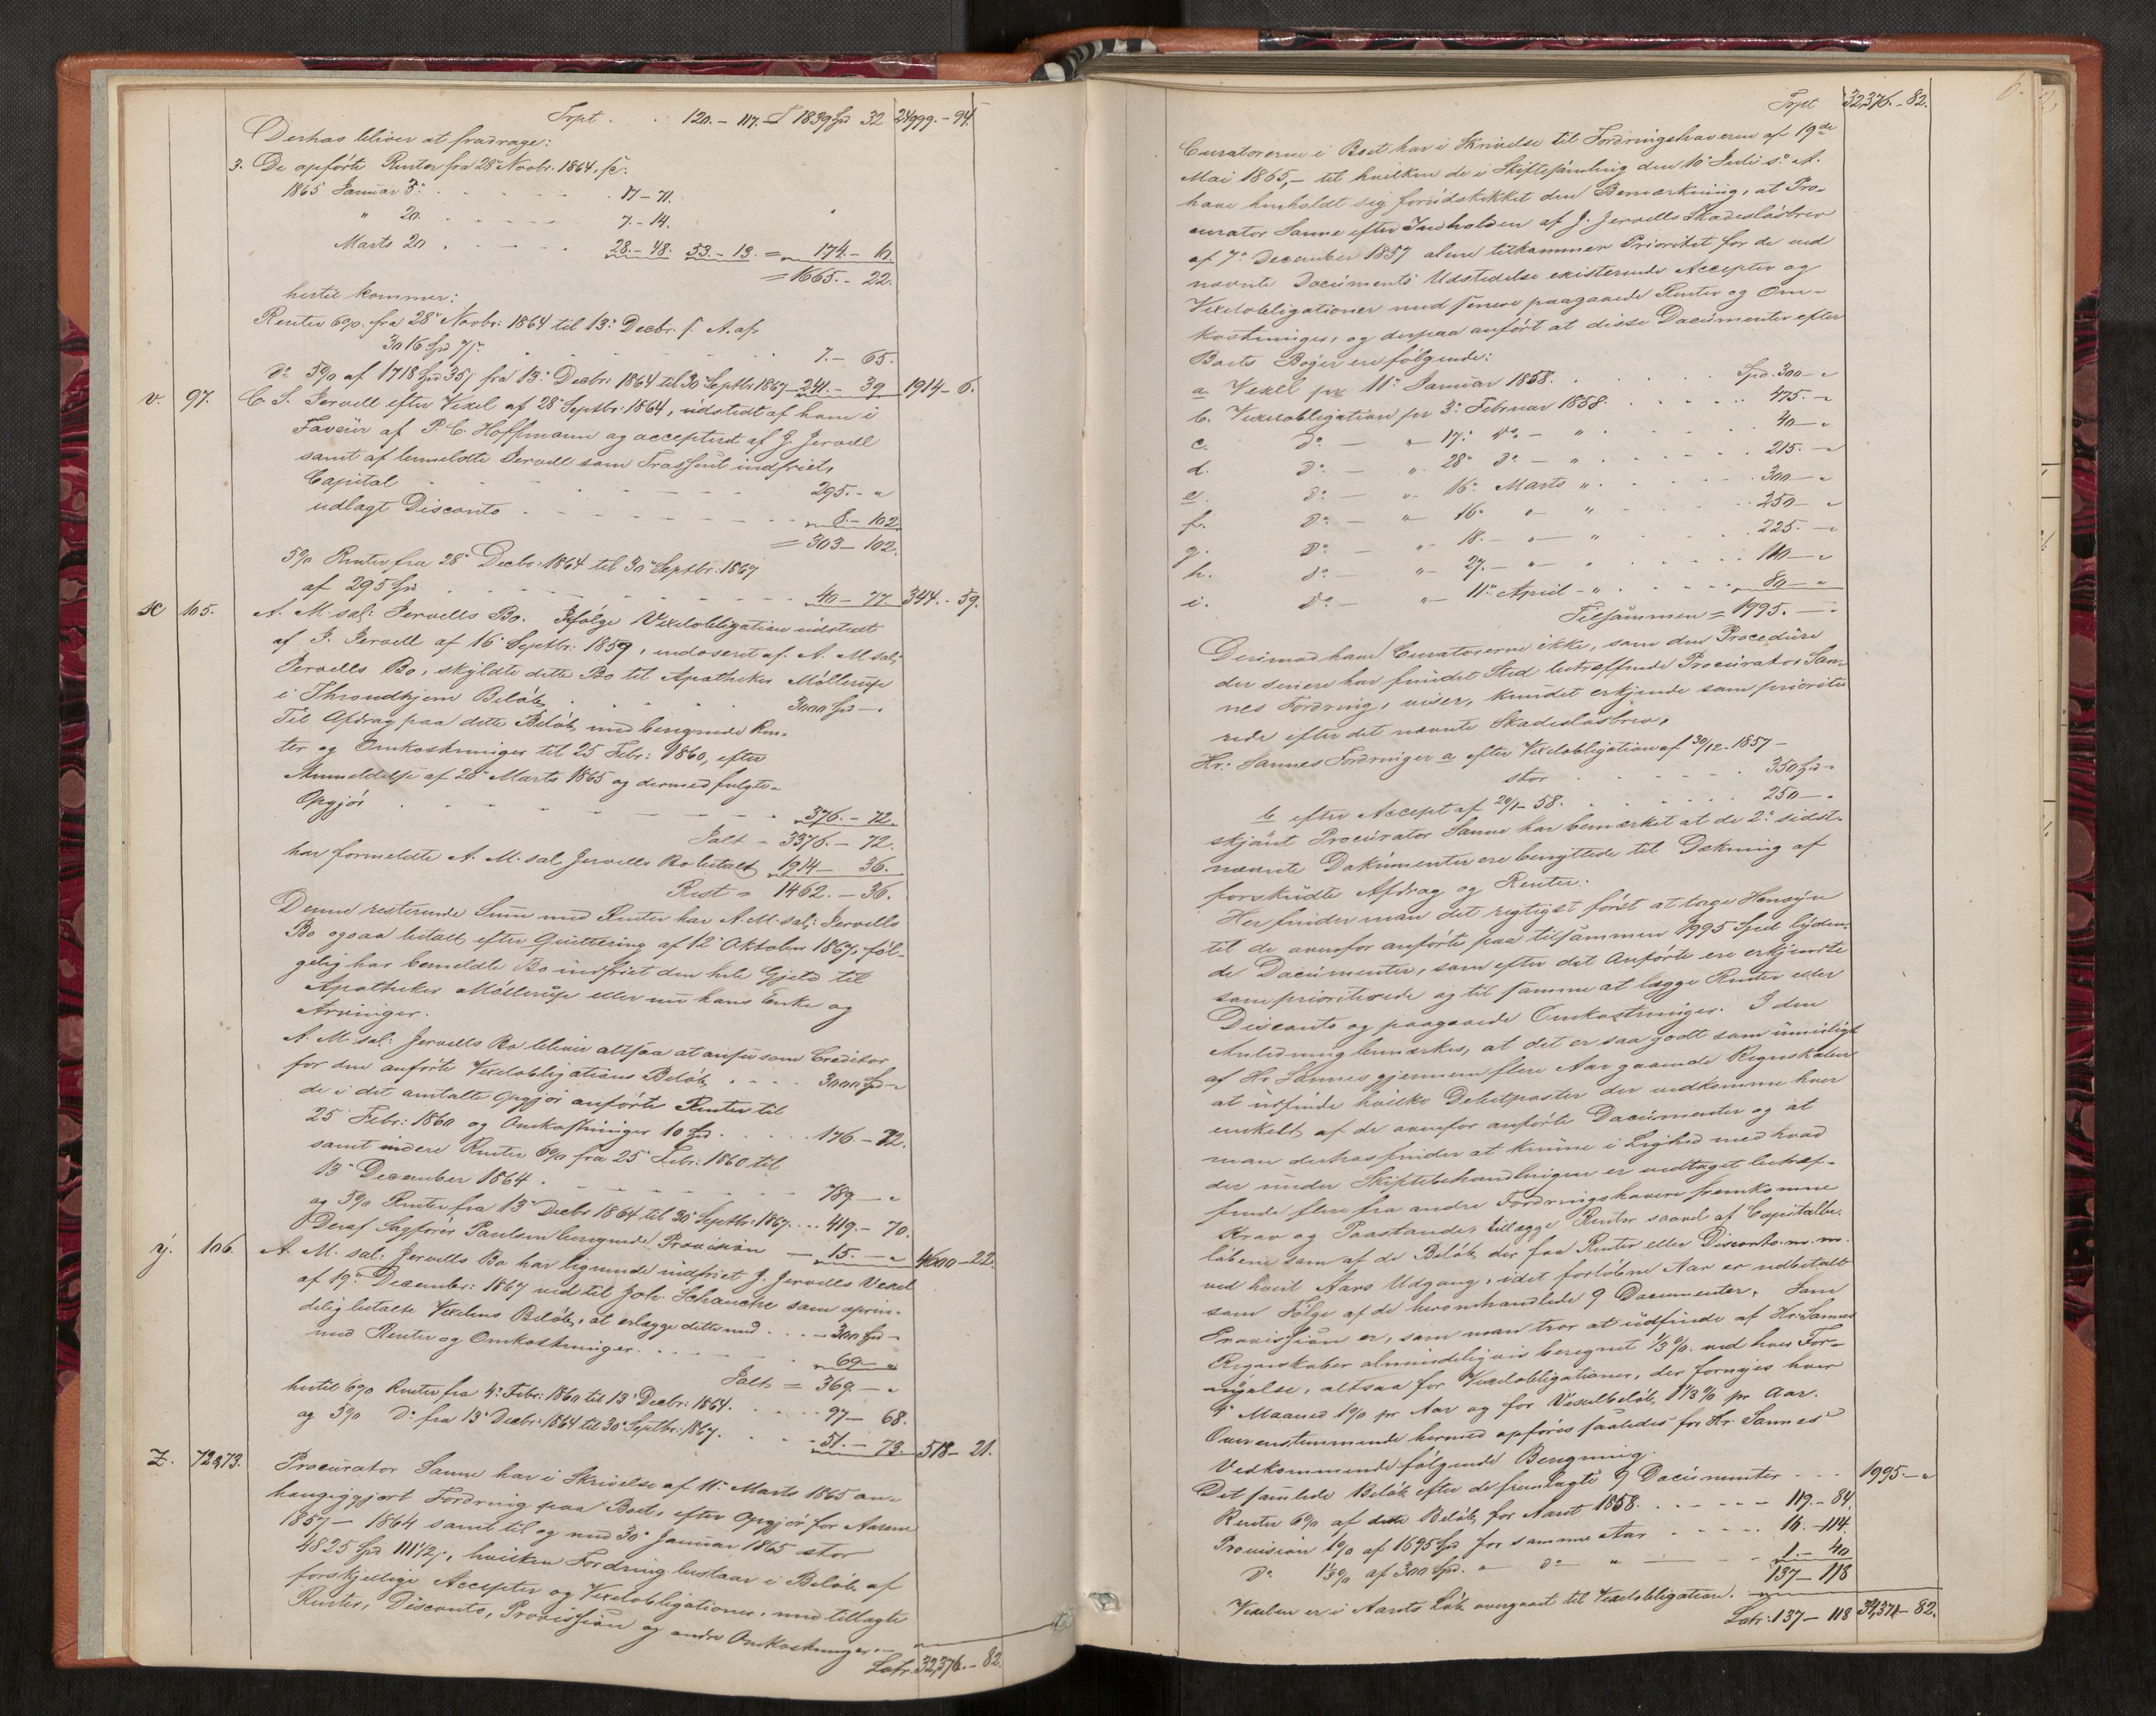 Trpt . . 120.- 117. 1839 Spd 32 24999.- 94.
Derhos bliver at fradrage:
3. De opførte Renter fra 28 Novbr. 1864,
1865 Januar 3. . . . 17-71.
" 20. . . . . 7.-14.
Marts 20 . . . . 28.-48. 53.-13. = 174.- 10.
= 1665.- 22.
hertil kommer:
Renter 6% fra 28 Novbr: 1864 til 13 Decbr. s. A. af
3016 Spd 7 . . . . 7.- 65.
do 5% af 1718 Spd 35 fra 13 Decbr: 1864 til 30 Septbr 1867 241.- 39 1914-6.
v. 97. C. S. Jervell efter Vexel af 28 Septbr: 1864, udstedt af ham i
Faveur af P. C. Hoffmann og accepteret af J. Jervell
samt af bemeldte Jervell som Trassent indfriet,
Capital . . . 295.- "
udlagt Disconto . . . 8.- 102.
= 303- 102.
5% Renter fra 28 Decbr: 1864 til 30 Septbr: 1867
af 295 Spd . . . 40- 77. 344.- 59.
x 105. A. M. sal: Jervells Bo. Ifølge Vexelobligation udstedt
af J. Jervell af 16 Septbr: 1859, endosseret af A. M. sal:
Jervells Bo, skyldte dette Bo til Apotheker Møllerup
i Throndhjem Beløb . . . 3000 Spd - "
Til Afdrag paa dette Beløb med beregnede Ren-
ter og Omkostninger til 25 Febr: 1860, efter
Anmeldelse af 28 Marts 1865 og dermed fulgte
Opgjør . . . 376.- 72.
Ialt = 3376.- 72.
har formeldte A. M. sal Jervells Bo betalt 1914- 36.
Rest = 1462.- 36.
Denne resterende Sum med Renter har A. M. sal: Jervells
Bo ogsaa betalt efter Quittering af 12 Oktober 1867, føl-
gelig har bemeldte Bo indfriet den hele Gjeld til
Apotheker Møllerup eller nu hans Enke og
Arvinger.
A. M. sal: Jervells Bo bliver altsaa at anføre som Creditor
for den anførte Vexelobligations Beløb . . . 3000 Spd - "
de i det omtalte Opgjør anførte Renter til
25 Febr: 1860 og Omkostninger 10 Spd . . . 176- 72.
samt videre Renter 6% fra 25 Febr: 1860 til
13 December 1864 . . . 789.- "
og 5% Renter fra 13 Decbr 1864 til 30 Septbr: 1867 . . 419.- 70.
Deraf Sagfører Paulsen beregnede Provision - 15.- " 4400-22.
y. 106. A. M. sal: Jervells Bo har ligeunde indfriet J. Jervells Vexel
af 19 December: 1867 ved til Joh. Schanche som oprin-
delig betalte Vexelens Beløb, at erlægge dette med . . . 300 Spd -
med Renter og Omkostninger . . . 69- "
Ialt = 369.- "
hertil 6% Renter fra 4 Febr: 1860 til 13 Decbr: 1864. . . . 97- 68.
og 5% do fra 13 Decbr: 1864 til 30 Septbr: 1867. . . . 51.- 73. 518- 21.
Z. 72&73. Procurator Sanne har i Skrivelse af 11 Marts 1865 an-
hængiggjort Fordring paa Boet, efter Opgjør for Aarene
1857- 1864 samt til og med 30 Januar 1865 stor
4825 Spd 111 1/2, hvilken Fordring bestaar i Beløb af
forskjellige Accepter og Vexelobligationer, med tillagte
Renter, Disconto, Provission og andre Omkostninger
Latr. 32,376.- 82.
Trpt 32,376.- 82.
Curatorerne i Boet har i Skrivelse til Fordringshaveren af 19de
Mai 1865,- til hvilken de i Skiftesamling den 10 Juli s. A.
have henholdt sig forudskikket den Bemærkning, at Pro-
curator Sanne efter Indholden af J. Jervells Skadesløsbrev
af 7 December 1857 alene tilkommer Prioritet for de ved
nævnte Documents Udstedelse existerende Accepter og
Vexelobligationer med senere paagaaede Renter og Om-
kostninger, og derpaa anført at disse Documenter efter
Boets Bøger ere følgende:
a. Vexel pr 11 Januar 1858. . . . Spd. 300- "
b. Vexelobligation pr 3 Februar 1858. . . . 475.- "
c. do - " 17 do - " . . . 40- "
d. do - " 28 do - " . . . 215.- "
e. do - " 16 Marts " . . . 300- "
f. do - " 16 " " . . . 250- "
g. do - " 18.- " - " . . . 225.- "
h. do - " 27.- " - " . . . 110- "
i. do - " 11 April - " . . . 80- "
Tilsammen = 1995.- "
Derimod have Curatorerne ikke, som den Procedure
der senere har fundet Sted betræffende Procurator San-
nes Fordring, viser, kundet erkjende som priorite-
rede efter det nævnte Skadesløsbrev,
Hr: Sannes Fordringer a efter Vexelobligation af 30/12 1857-
stor . . . 350 Spd "
b efter Accept af 20/1 58. . . . 250- "
skjønt Procurator Sanne har bemærket at de 2 sidst-
nævnte Dokumenter ere benyttede til Dækning af
forskudte Afdrag og Renter.
Her finder man det rigtigst først at tage Hensyn
til de ovenfor anførte paa tilsammen 1995 Spd lyden-
de Documenter, som efter det Anførte ere erkjendte
som prioriterede og til samme at lægge Renter eller
Disconto og paagaaede Omkostninger. I den
Anledning bemærkes, at det er saa godt som umuligt
af Hr Sannes gjennem flere Aar gaaende Regnskaber
at udfinde hvilke Debetposter der vedkomme hver
enkelt af de ovenfor anførte Documenter og at
man derhos finder at kunne i Lighed med hvad
der under Skiftebehandlingen er vedtaget betræf-
fende flere fra andre Fordringshavere fremkomne
Krav og Paastande, tillægge Renter saavel af Capitalbe-
løbene som af de Beløb, der fra Renter eller Disconto m. m.
ved hvert Aars Udgang, i det forløbne Aar er udbetalt
som Følge af de heromhandlede 9 Documenter. Som
Provission er, som man tror at udfinde af Hr: Sannes
Regnskaber almindeligvis beregnet 1/3 % ved hver For-
nyelse, altsaa for Vexelobligationer, der fornyes hver
4 Maaned 1% pr Aar og for Vexelbeløb 1 1/3 % pr Aar.
Overensstemmende hermed opføres saaledes for Hr. Sannes
Vedkommende følgende Beregning.
Det samlede Beløb efter de fremlagte 9 Documenter . . . 1995.- "
Renter 6% af dette Beløb for Aaret 1858. . . . 119.- 84.
Provision 1% af 1695 Spd for samme Aar . . . 16.- 114.
do 1 1/3 % af 300 Spd. " do " - 1.- 40
137- 118
Vexelen er i Aarets Løb overgaaet til Vexelobligation.
Latr: 137- 118 34,371- 82.